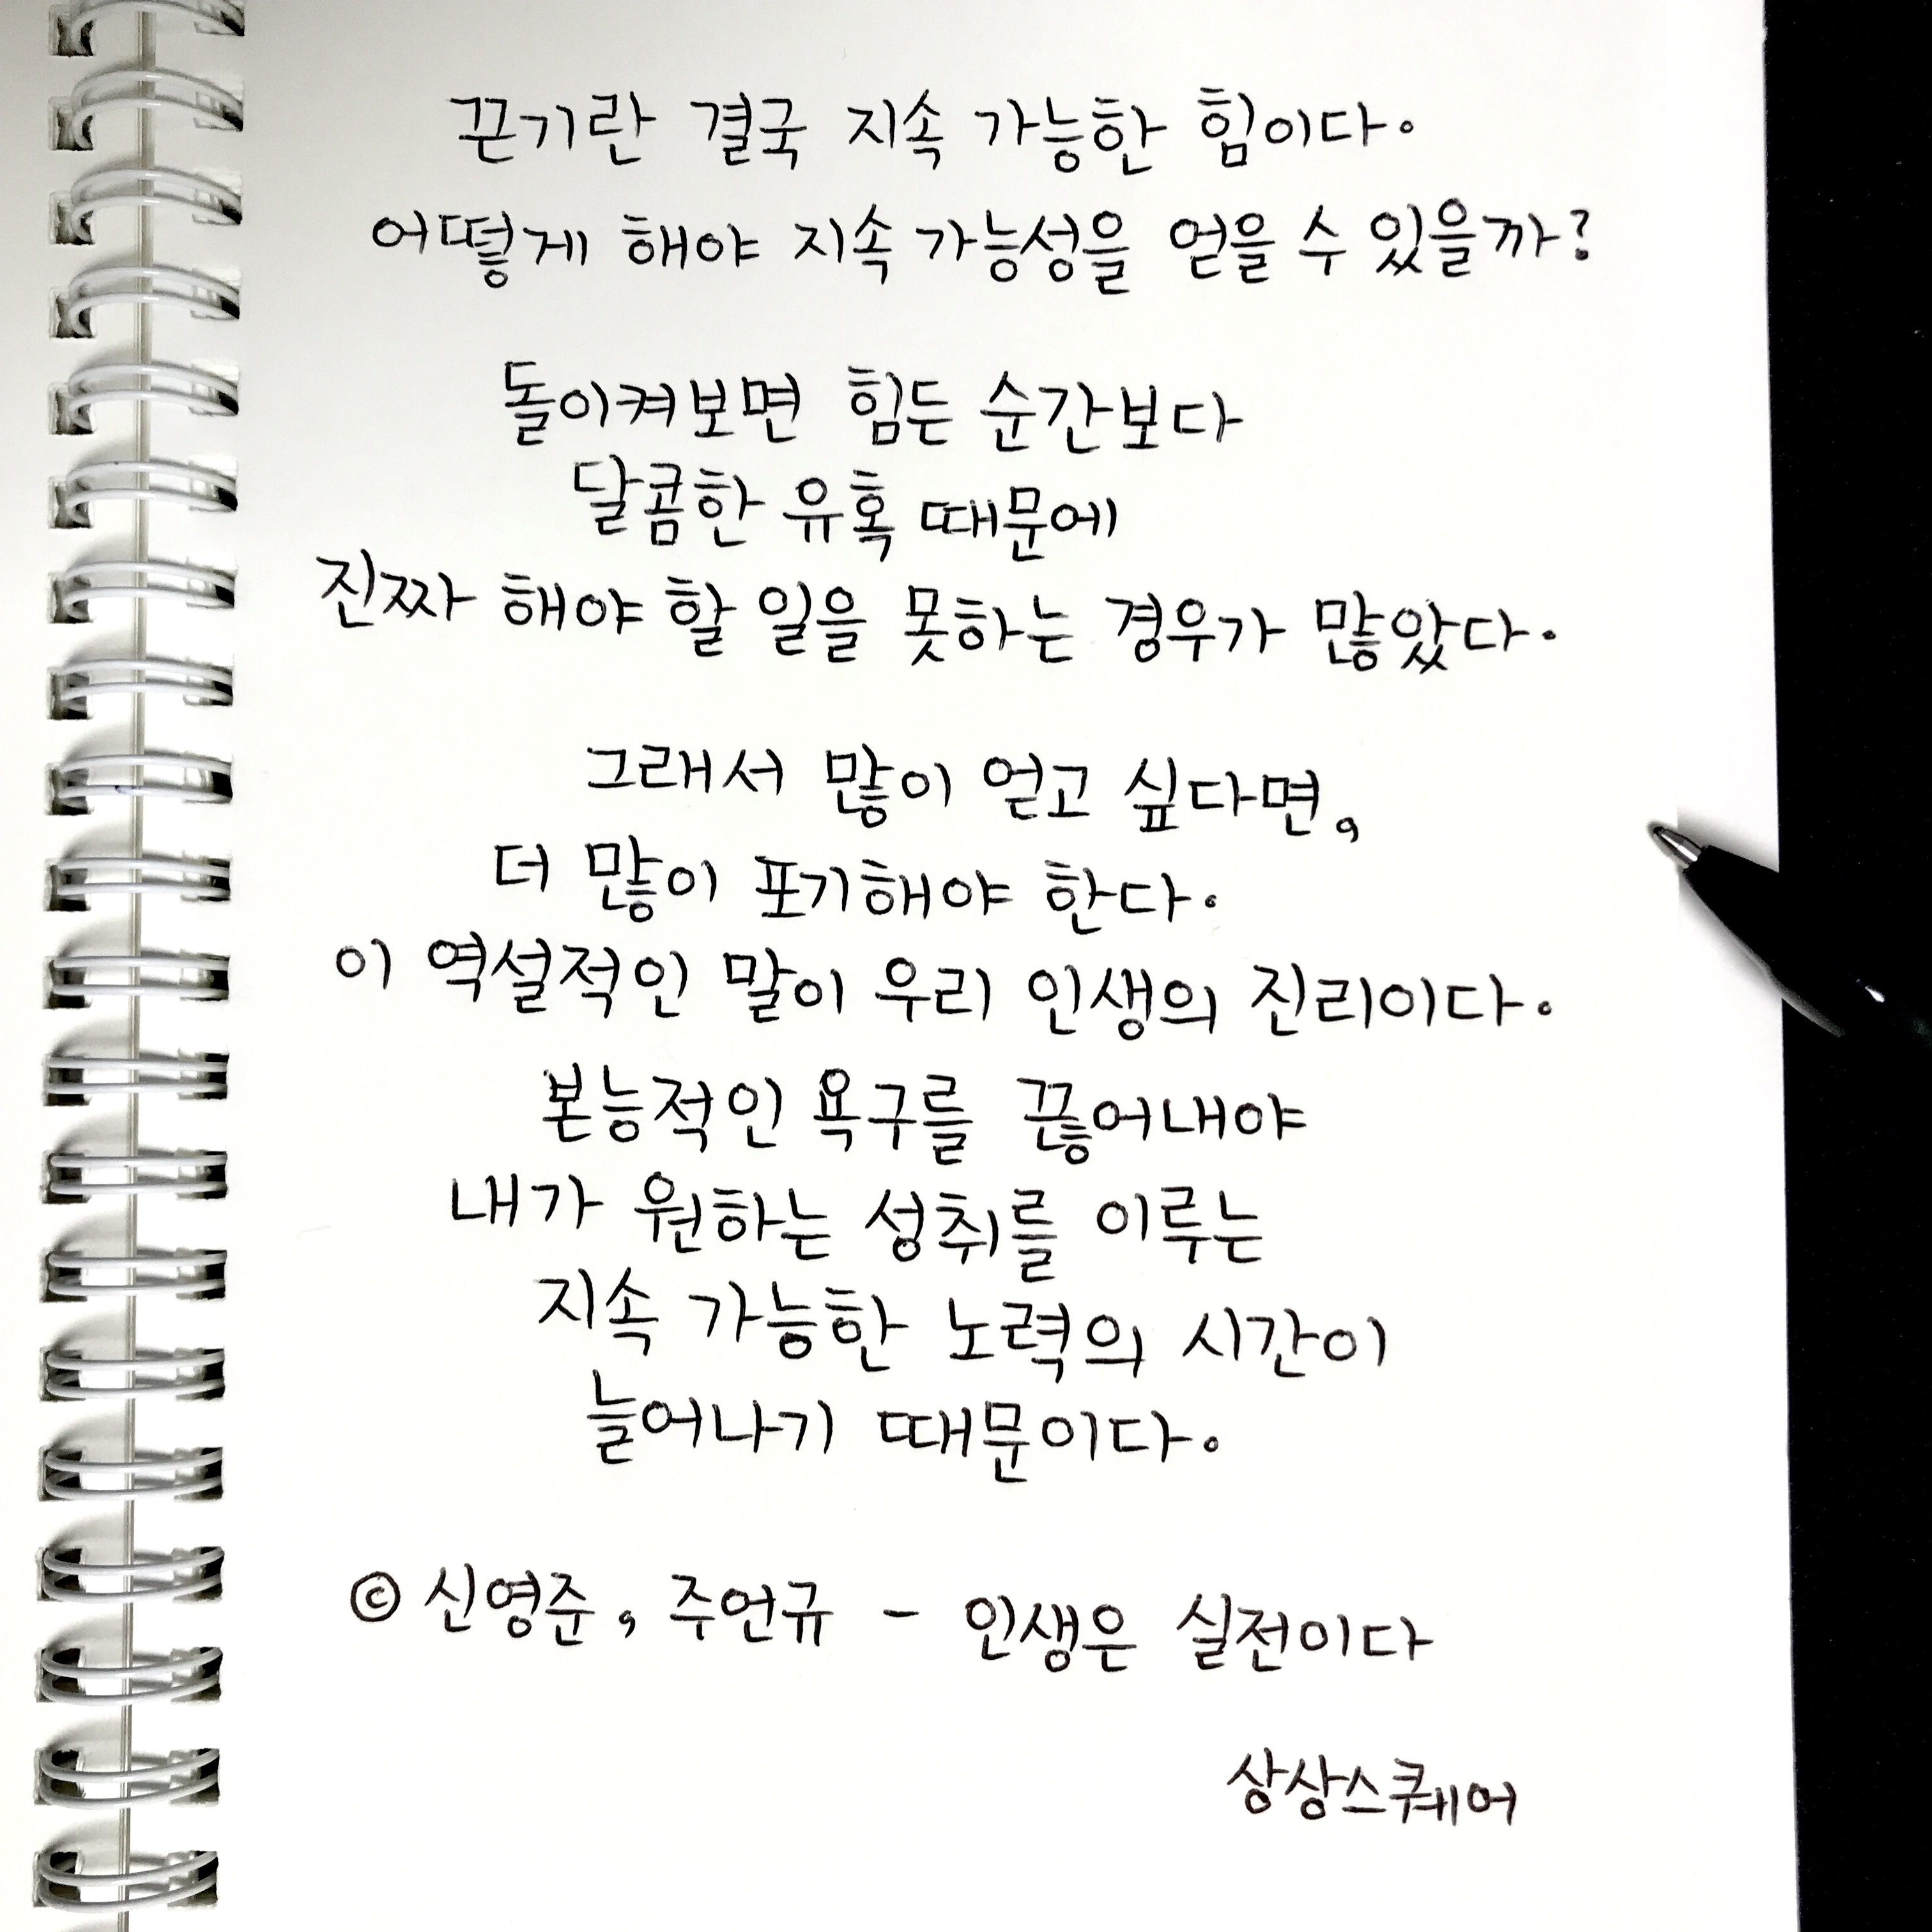 끈기란 결국 지속 가능한 힘이다.
어떻게 해야 지속 가능성을 얻을 수 있을까?
돌이켜보면 힘든 순간보다
달콤한 유혹 때문에
진짜 해야 할 일을 못하는 경우가 많았다.
그래서 많이 얻고 싶다면,
더 많이 포기해야 한다.
이 역설적인 말이 우리 인생의 진리이다.
본능적인 욕구를 끊어내야
내가 원하는 성취를 이루는
지속 가능한 노력의 시간이
늘어나기 때문이다.
© 신영준, 주언규 - 인생은 실전이다
상상스퀘어